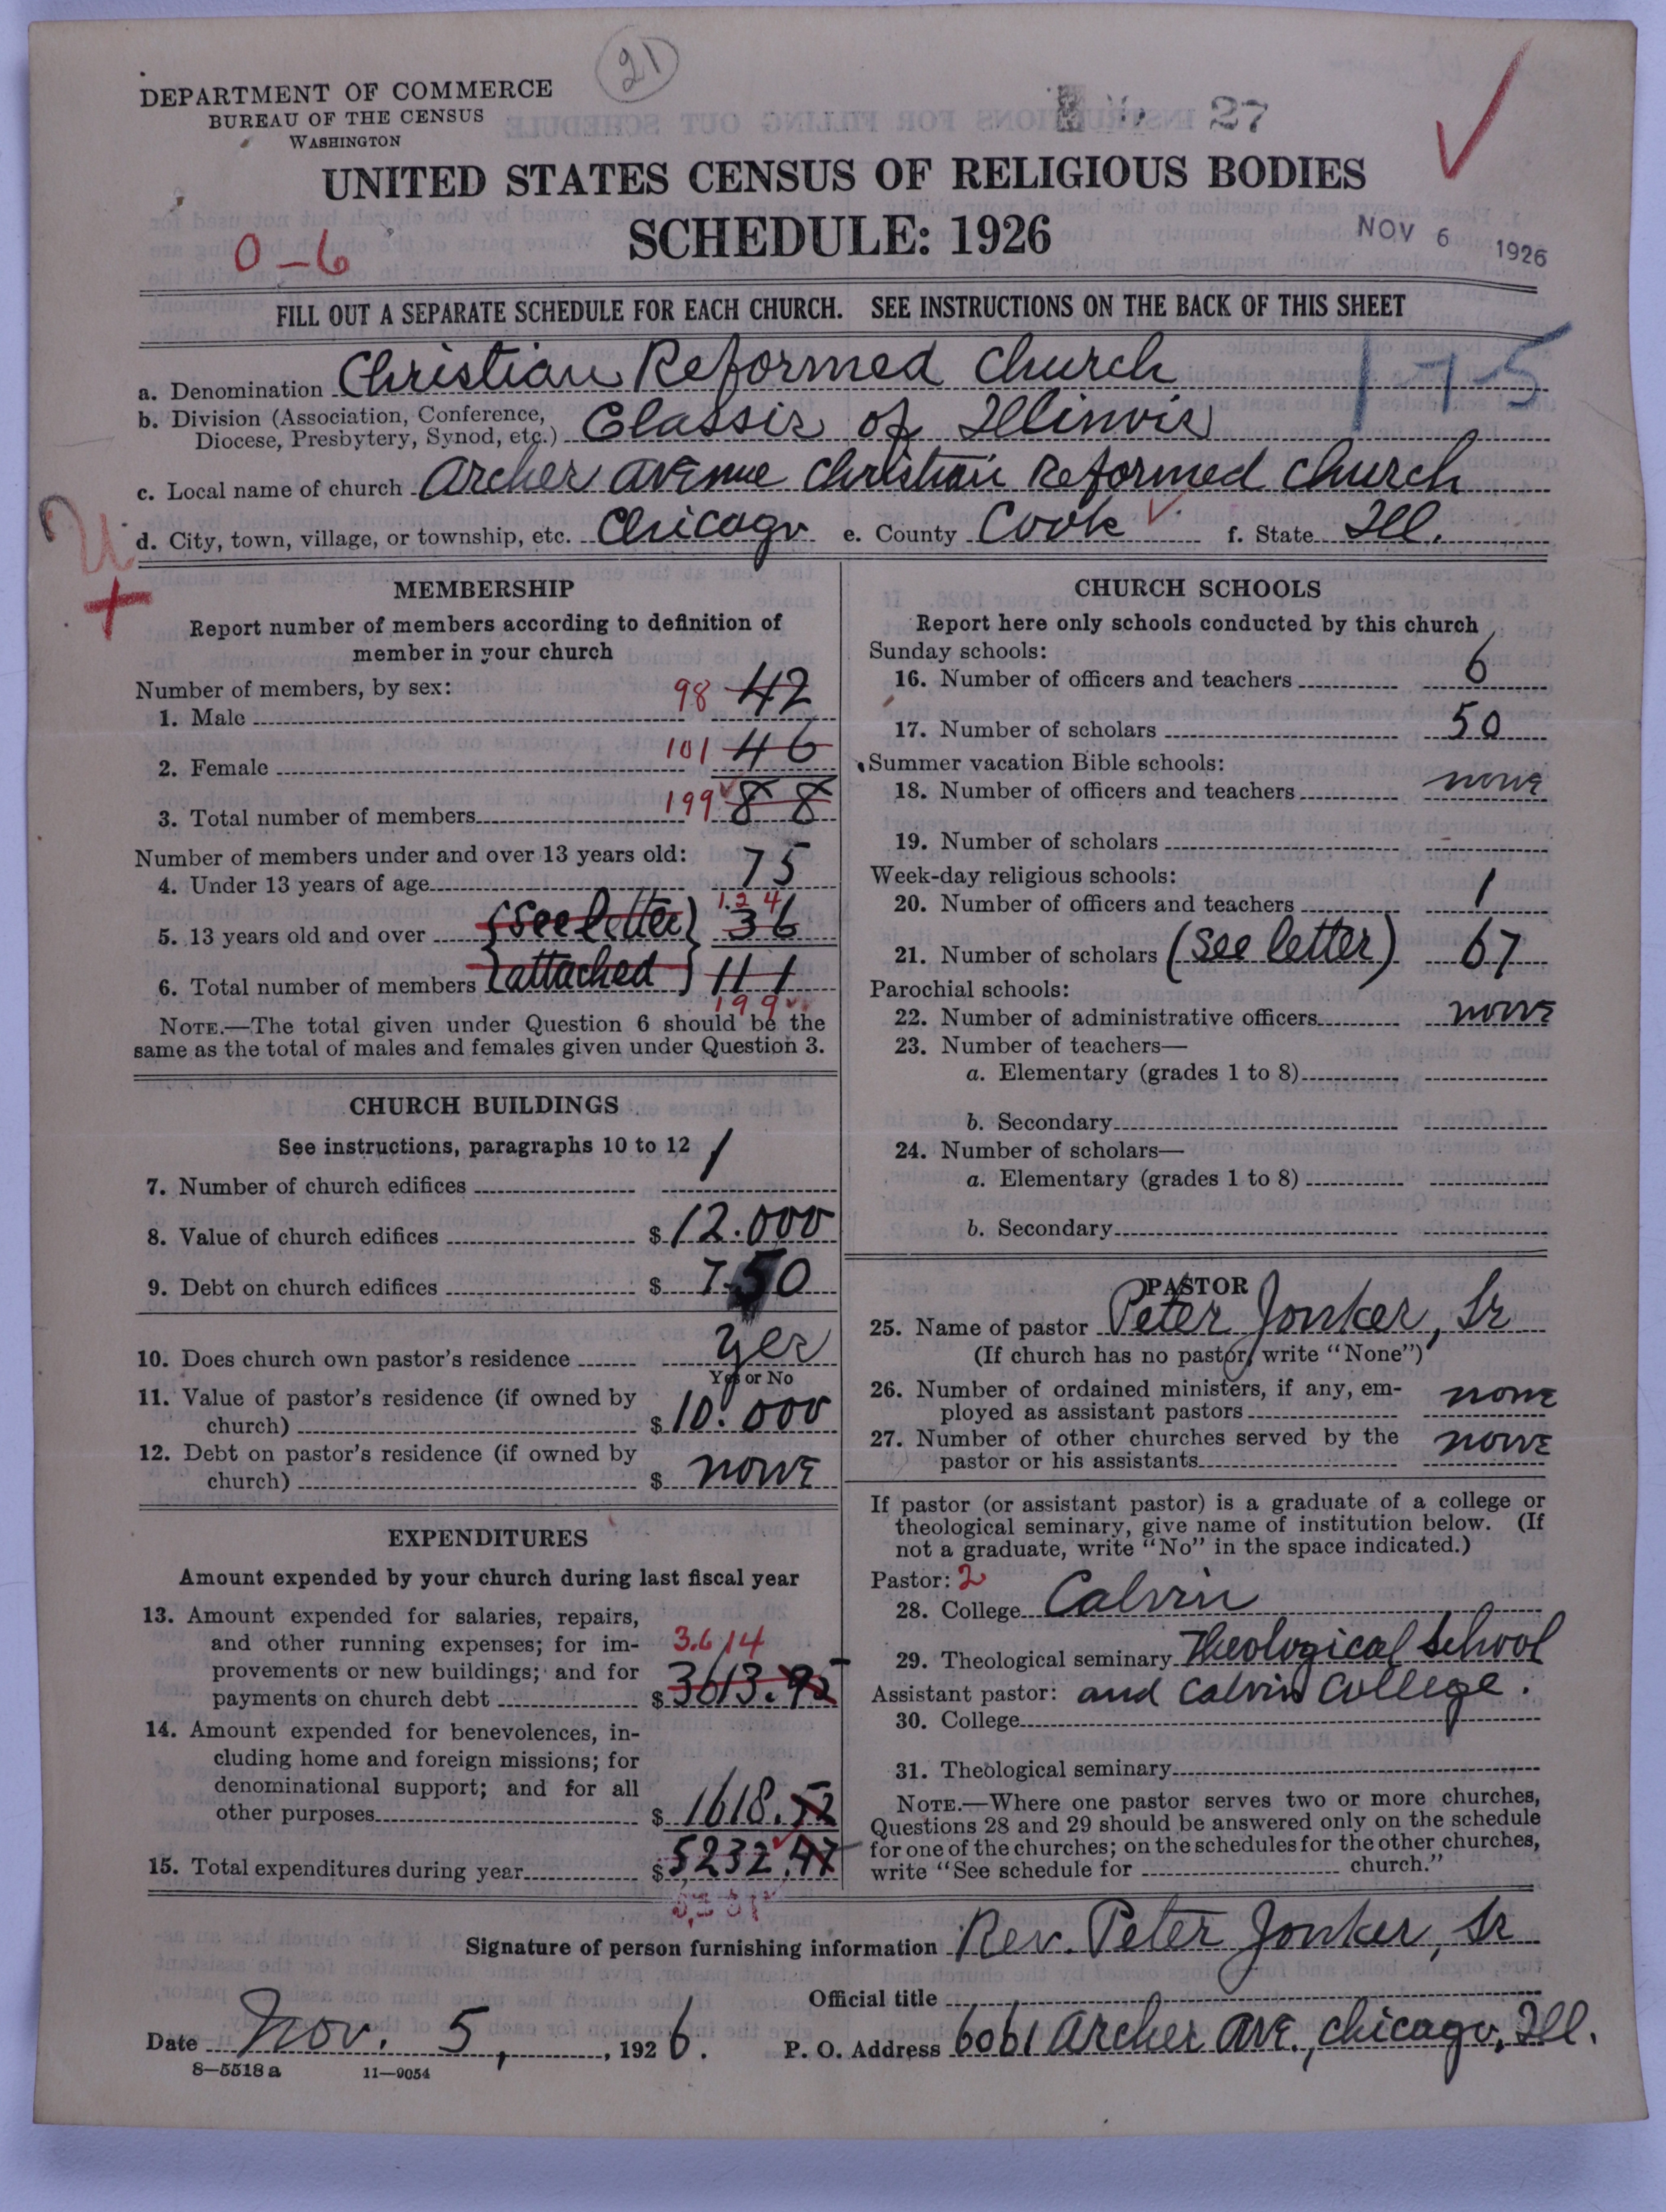 21
DEPARTMENT OF COMMERCE
BUREAU OF THE CENSUS
WASHINGTON
27
UNITED STATES CENSUS OF RELIGIOUS BODIES
SCHEDULE: 1926
NOV 6 1926
0-6
FILL OUT A SEPARATE SCHEDULE FOR EACH CHURCH. SEE INSTRUCTIONS ON THE BACK OF THIS SHEET
a. Denomination Christian Reformed Church
b. Division (Association, Conference,
Diocese, Presbytery, Synod, etc.) Classis of Illinois
c. Local name of church Archer Avenue Christian Reformed Church
d. City, town, village, or township, etc. Chicago e. County Cook f. State Ill.
MEMBERSHIP
Report number of members according to definition of
member in your church
Number of members, by sex:
1. Male 98 42
2. Female 101 46
3. Total number of members 199 88
Number of members under and over 13 years old:
4. Under 13 years of age 75
5. 13 years old and over (see letter) 124 36
6. Total number of members attached 111
199
NOTE.—The total given under Question 6 should be the
same as the total of males and females given under Question 3.
CHURCH BUILDINGS
See instructions, paragraphs 10 to 12
7. Number of church edifices 1
8. Value of church edifices $ 12.000
9. Debt on church edifices $ 750
10. Does church own pastor's residence yes
Yes or No
11. Value of pastor's residence (if owned by
church) $ 10.000
12. Debt on pastor's residence (if owned by
church) $ none
EXPENDITURES
Amount expended by your church during last fiscal year
13. Amount expended for salaries, repairs,
and other running expenses; for im-
provements or new buildings; and for
payments on church debt $ 3613.95
3,614
14. Amount expended for benevolences, in-
cluding home and foreign missions; for
denominational support; and for all
other purposes $ 1618.52
15. Total expenditures during year $ 5232.47
CHURCH SCHOOLS
Report here only schools conducted by this church
Sunday schools:
16. Number of officers and teachers 6
17. Number of scholars 50
Summer vacation Bible schools:
18. Number of officers and teachers none
19. Number of scholars -
Week-day religious schools:
20. Number of officers and teachers 1
21. Number of scholars (see letter) 67
Parochial schools:
22. Number of administrative officers none
23. Number of teachers—
a. Elementary (grades 1 to 8)
b. Secondary
24. Number of scholars—
a. Elementary (grades 1 to 8)
b. Secondary
PASTOR
25. Name of pastor Peter Jonker, Sr
(If church has no pastor, write "None")
26. Number of ordained ministers, if any, em-
ployed as assistant pastors none
27. Number of other churches served by the
pastor or his assistants none
If pastor (or assistant pastor) is a graduate of a college or
theological seminary, give name of institution below. (If
not a graduate, write "No" in the space indicated.)
Pastor: 2
28. College Calvin
29. Theological seminary Theological School
Assistant pastor: and Calvin College.
30. College
31. Theological seminary
NOTE.—Where one pastor serves two or more churches,
Questions 28 and 29 should be answered only on the schedule
for one of the churches; on the schedules for the other churches,
write "See schedule for church."
Signature of person furnishing information Rev. Peter Jonker, Sr
Official title
Date Nov. 5, 1926. P. O. Address 6061 Archer Ave., Chicago, Ill.
8—5518a 11—9054